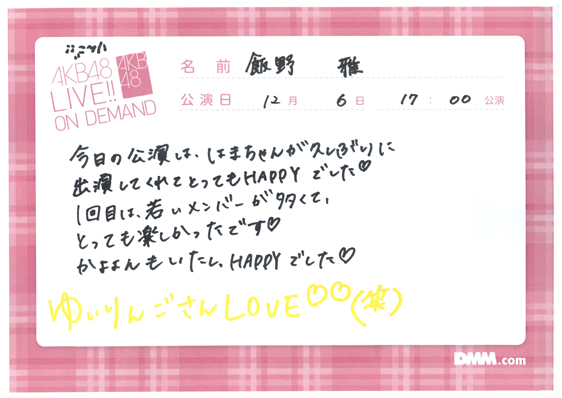 名前 飯野 雅
AKB48
LIVE!!
ON DEMAND
AKB
48
公演日 12月 6日 17:00 公演
今日の公演は、はまちゃんが久しぶりに
出演してくれてとってもHAPPYでした♡
1回目は、若いメンバーが多くて、
とっても楽しかったです♡
かよよんもいたし、HAPPYでした♡
ゆいりんごさんLOVE♡♡(笑)
DMM.com